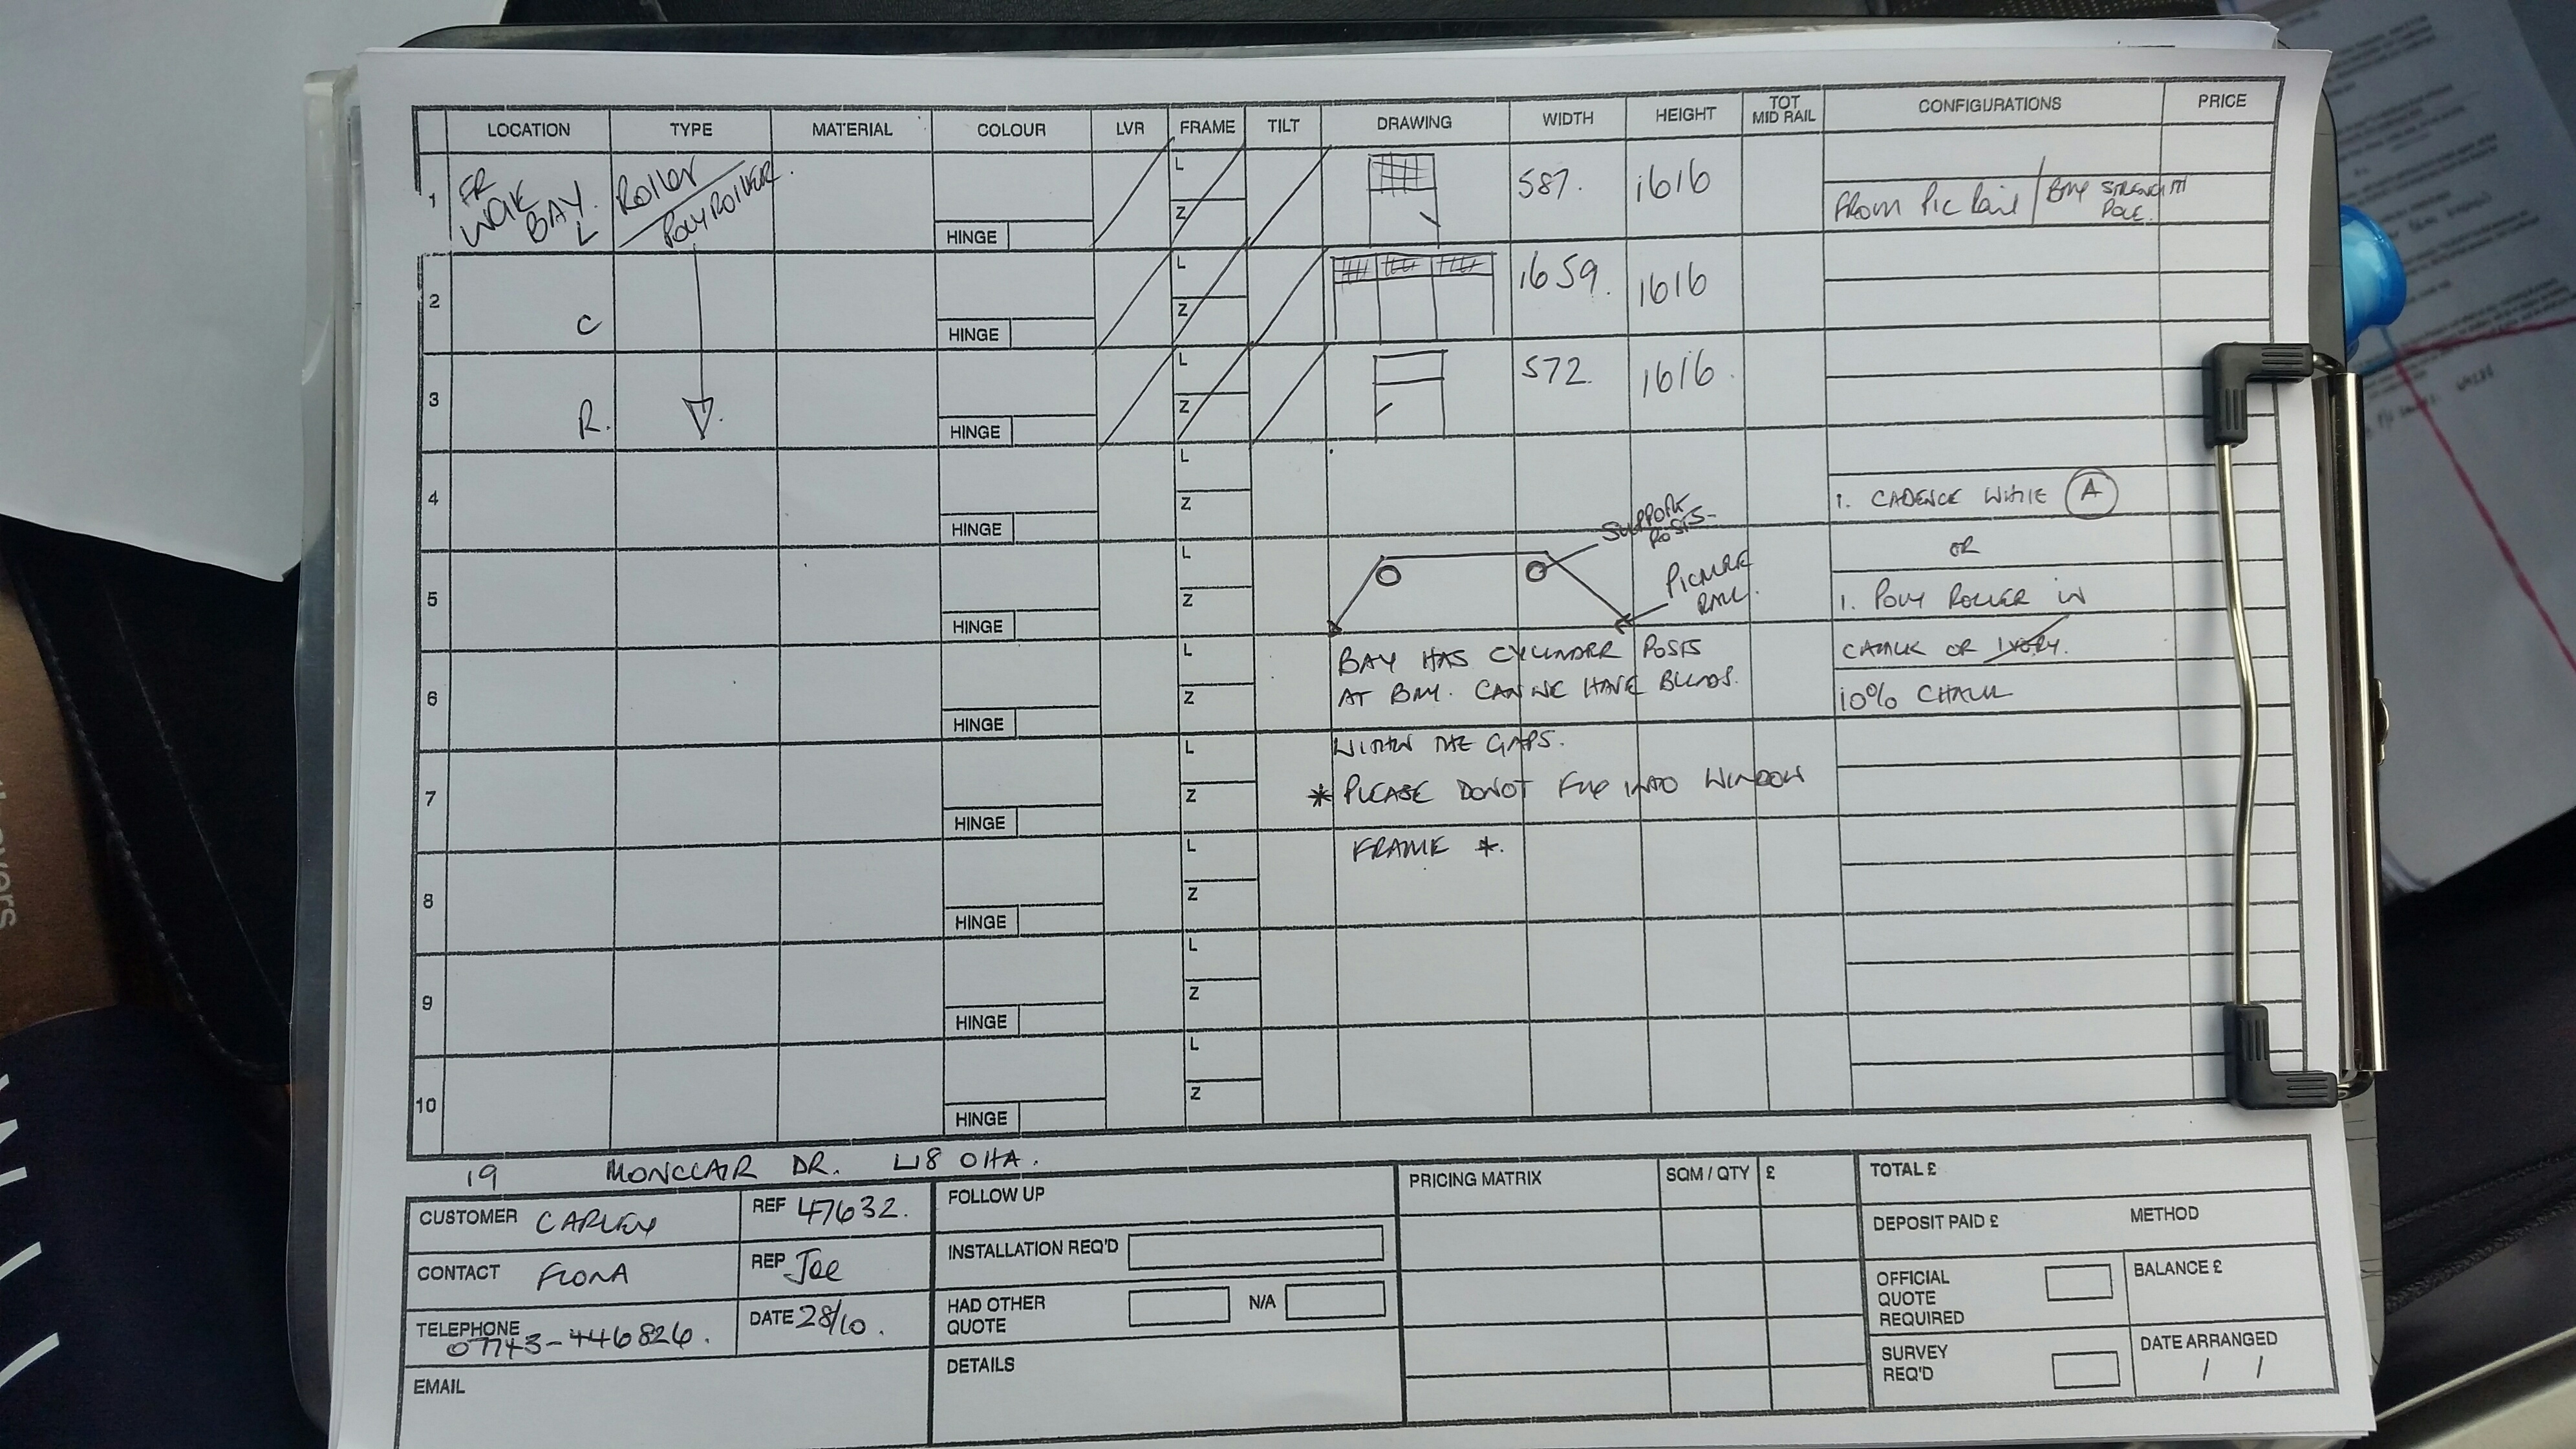 LOCATION TYPE MATERIAL COLOUR LVR FRAME TILT DRAWING WIDTH HEIGHT TOT MID RAIL CONFIGURATIONS PRICE
1 FR BAY. L Roller / POLY ROLLER. HINGE L Z 587. 1616 FROM Pic Rail / BAY STRENGTH POLE.
2 C HINGE L Z 1659. 1616
3 R. HINGE L Z 572. 1616.
4 HINGE L Z 1. CADENCE WHITE A
SUPPORT POSTS
OR
5 HINGE L Z PICTURE RAIL. 1. POLY ROLLER IN
6 HINGE L Z BAY HAS CYLINDER POSTS CHALK OR IVORY.
AT BAY. CAN WE HAVE BLINDS. 10% CHALK
7 HINGE L Z WITHIN THE GAPS.
* PLEASE DO NOT FIX INTO WINDOW
8 HINGE L Z FRAME *.
9 HINGE L Z
10 HINGE L Z
19 MONCLAIR DR. L18 0HA.
CUSTOMER CARLEY
REF 47632.
CONTACT FIONA
REP Joe
TELEPHONE 07743-446826.
DATE 28/10.
EMAIL
FOLLOW UP
INSTALLATION REQ'D
HAD OTHER QUOTE N/A
DETAILS
PRICING MATRIX SQM / QTY £
TOTAL £
DEPOSIT PAID £ METHOD
OFFICIAL QUOTE REQUIRED
BALANCE £
SURVEY REQ'D
DATE ARRANGED
/ /